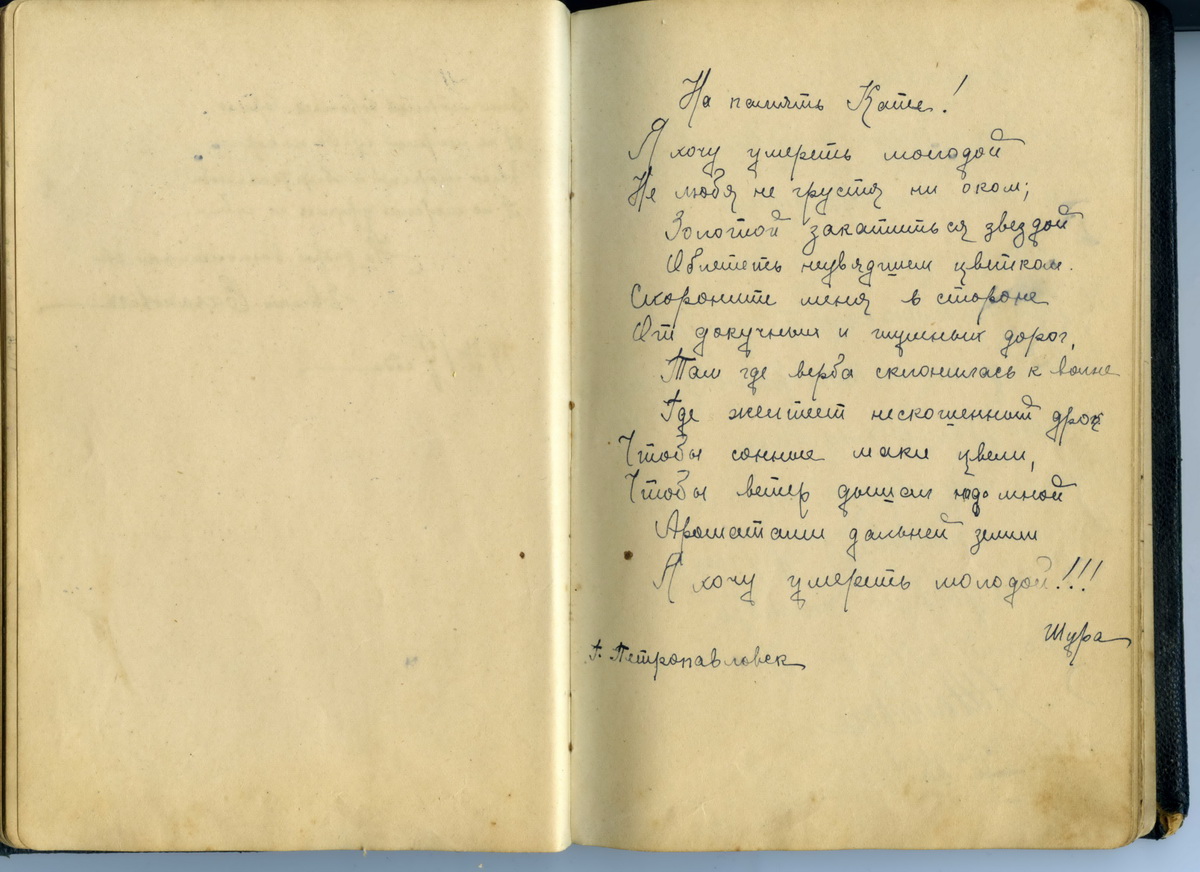 На память Кате!
Я хочу умереть молодой
Не любя не грустя ни о ком;
Золотой закатиться звездой
Облететь неувядшим цветком.
Схороните меня в стороне
От докучных и шумных дорог,
Там где верба склонилась к волне
Где желтеет нескошенный дрок
Чтобы сонные маки цвели,
Чтобы ветер дышал надо мной
Ароматами дальней земли
Я хочу умереть молодой!!!
Шура
г. Петропавловск